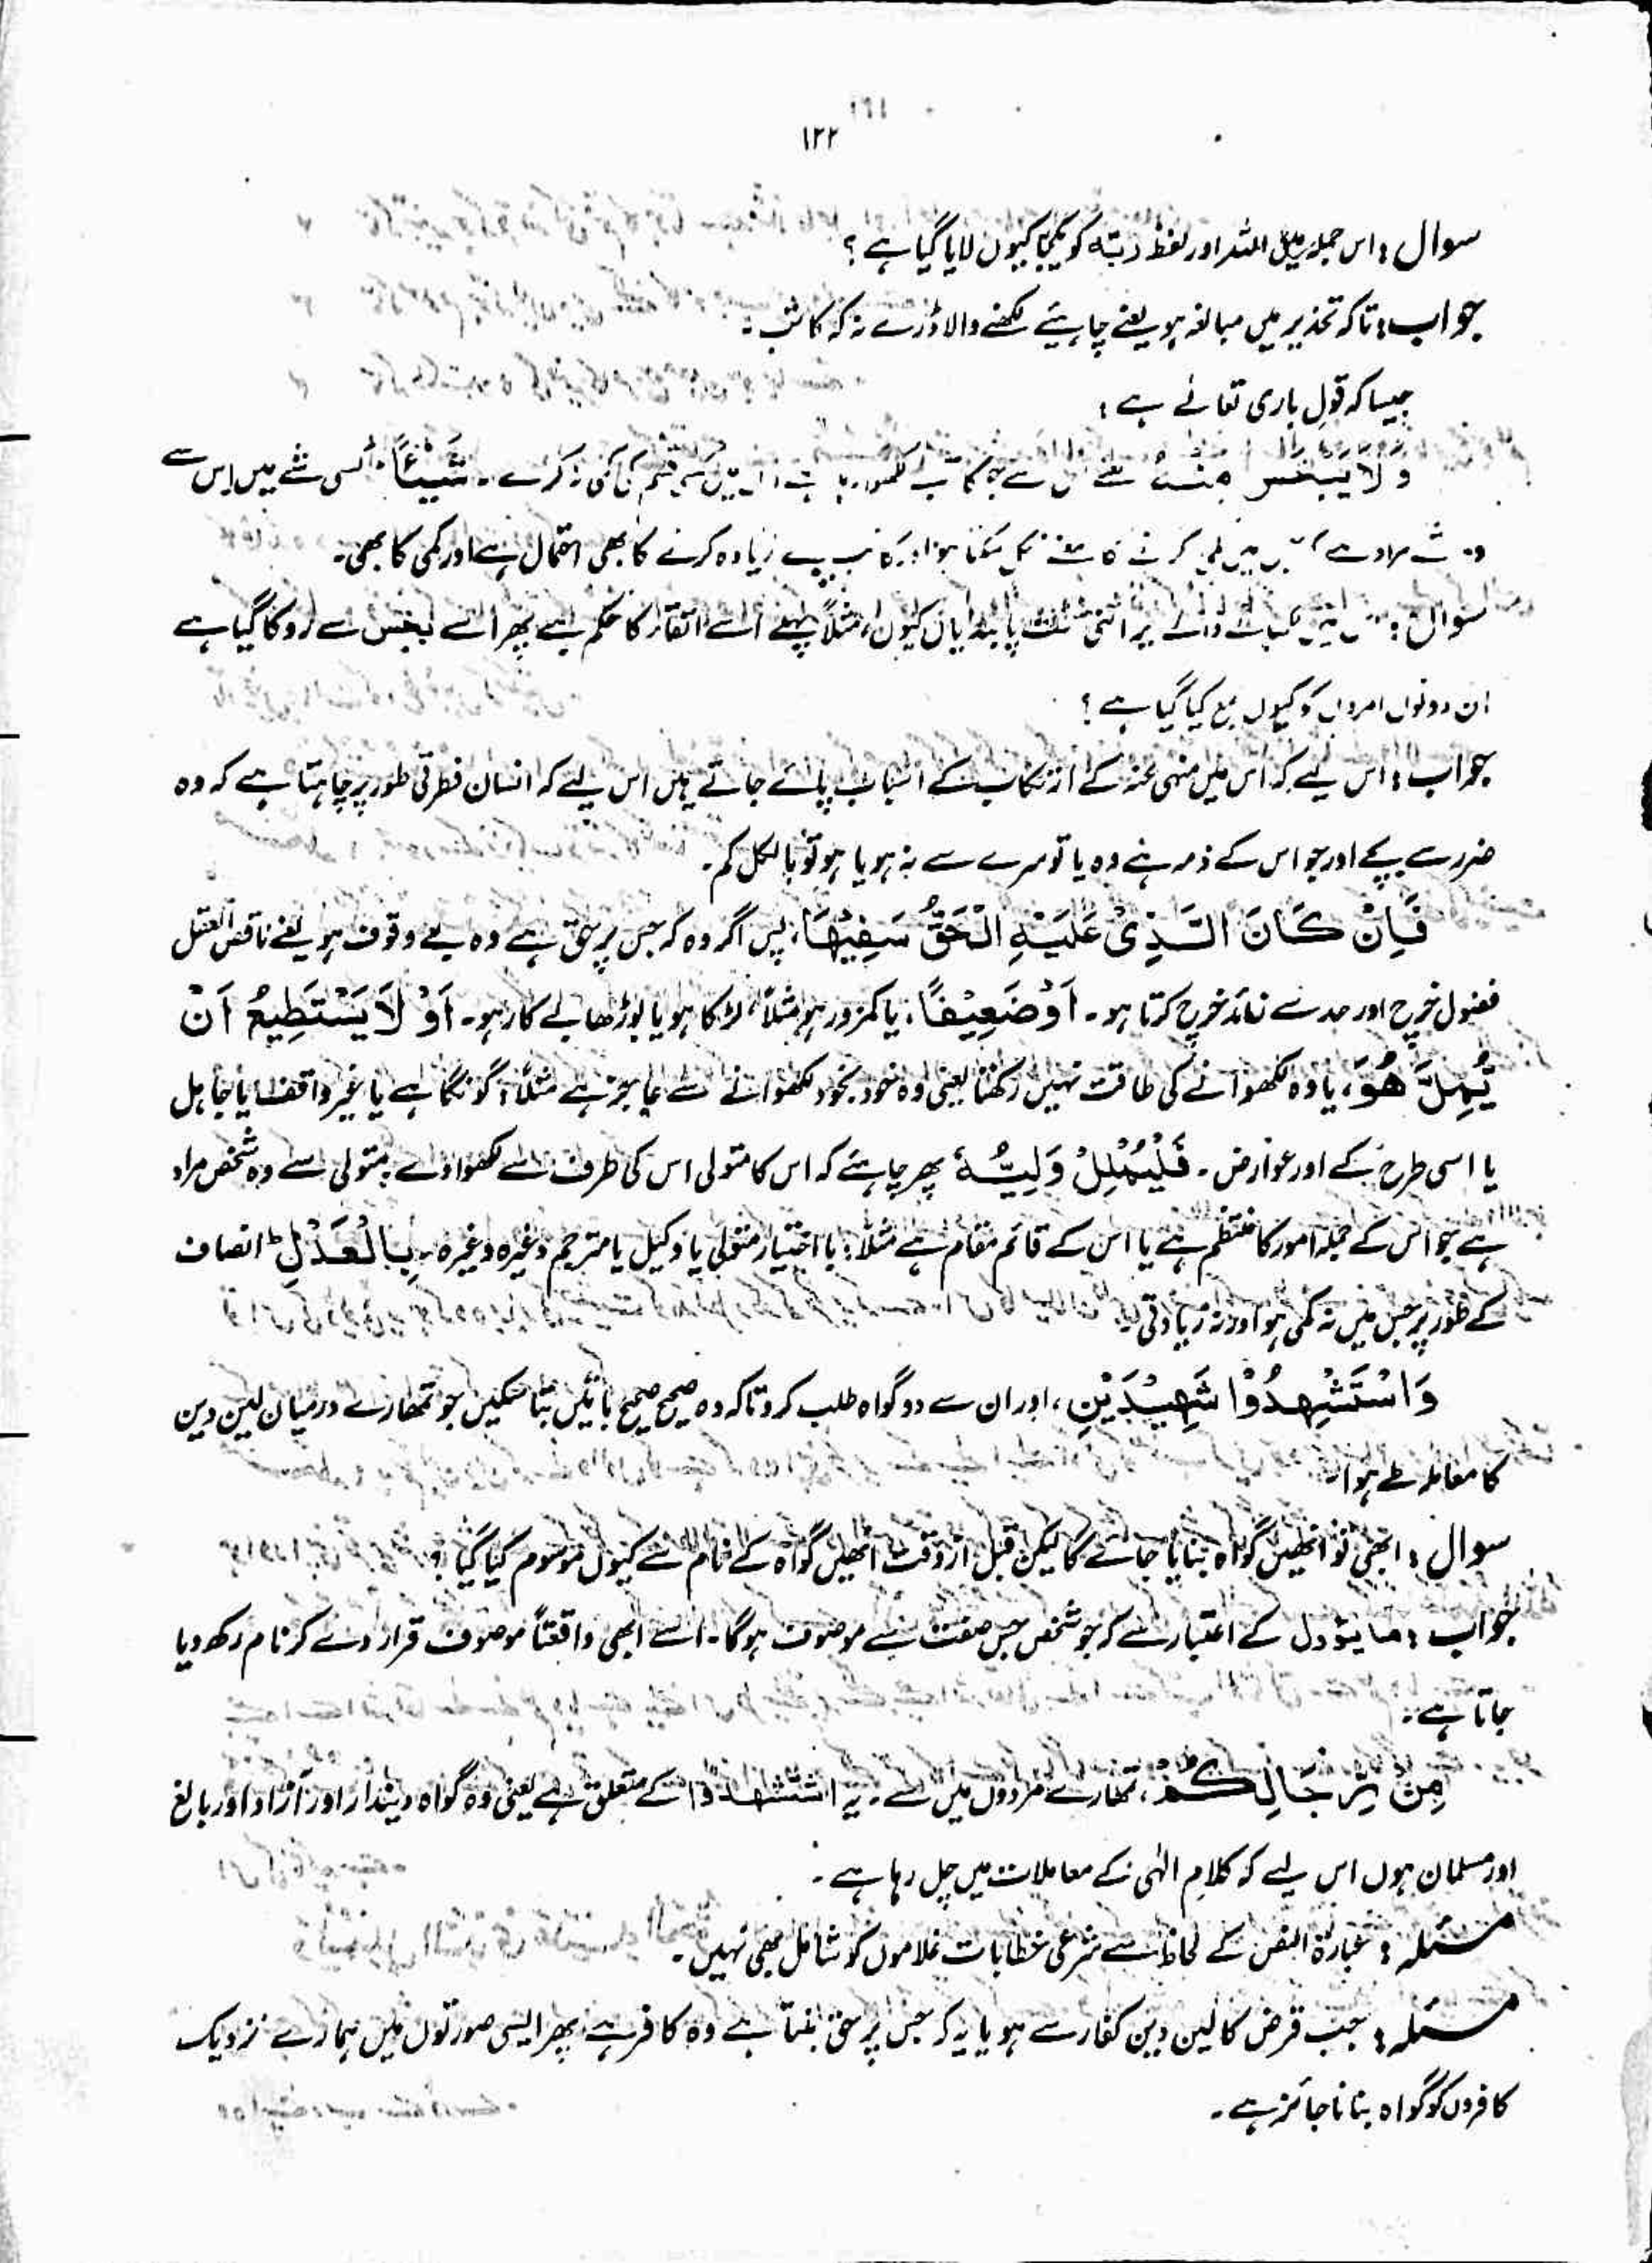 ۱۲۲
سوال : اس جملہ میں اللہ اور لفظ ربّہ کو یکجا کیوں لایا گیا ہے ؟
جواب : تاکہ تحذیر میں مبالغہ ہو یعنے چاہیئے لکھنے والا ڈرے نہ کہ کاتب ۔
جیسا کہ قولِ باری تعالےٰ ہے :
وَلَا یَبْخَسْ مِنْہُ اس سے جو کاتب کسی قسم کی کمی نہ کرے ۔ شَیْئًا کسی شے میں اس سے
مراد ہے زیادہ کرنے کا بھی احتمال ہے اور کمی کا بھی ۔
سوال : والے پر اتنی سخت پابندیاں کیوں، مثلاً پہلے اسے اتقاء کا حکم ہے پھر اسے بخس سے روکا گیا ہے
ان دونوں امروں کو کیوں جمع کیا گیا ہے ؟
جواب : اس لیے کہ اس میں منہی عنہ کے ارتکاب کے اسباب پائے جاتے ہیں اس لیے کہ انسان فطرتی طور پر چاہتا ہے کہ وہ
ضرر سے بچے اور جو اس کے ذمہ ہے وہ یا تو سرے سے نہ ہو یا ہو تو بالکل کم ۔
فَاِنْ کَانَ الَّذِیْ عَلَیْہِ الْحَقُّ سَفِیْھًا ، پس اگر وہ کہ جس پر حق ہے وہ بے وقوف ہو یعنے ناقص العقل
فضول خرچ اور حد سے زائد خرچ کرتا ہو ۔ اَوْ ضَعِیْفًا ، یا کمزور ہو مثلاً ، لڑکا ہو یا بوڑھا بے کار ہو ۔ اَوْ لَا یَسْتَطِیْعُ اَنْ
یُّمِلَّ ھُوَ ، یا وہ لکھوانے کی طاقت نہیں رکھتا یعنی وہ خود بخود لکھوانے سے عاجز ہے مثلاً ؛ گونگا ہے یا غیر واقف یا جاہل
یا اسی طرح کے اور عوارض ۔ فَلْیُمْلِلْ وَلِیُّہٗ پھر چاہئے کہ اس کا متولی اس کی طرف سے لکھوا دے ۔ متولی سے وہ شخص مراد
ہے جو اس کے جملہ امور کا منتظم ہے یا اس کے قائم مقام ہے مثلاً : با اختیار متولی یا وکیل یا مترجم وغیرہ وغیرہ ۔ بِالْعَدْلِ ط انصاف
کے طور پر جس میں نہ کمی ہو اور نہ زیادتی ۔
وَاسْتَشْہِدُوْا شَہِیْدَیْنِ ، اور ان سے دو گواہ طلب کرو تاکہ وہ صحیح صحیح باتیں بتا سکیں جو تمھارے درمیان لین دین
کا معاملہ طے ہوا ۔
سوال : ابھی تو انھیں گواہ بنایا جائے گا لیکن قبل از وقت انھیں گواہ کے نام سے کیوں موسوم کیا گیا ؟
جواب : ما یؤول کے اعتبار سے کہ جو شخص جس صفت سے موصوف ہوگا ۔ اسے ابھی واقعتاً موصوف قرار دے کر نام رکھ دیا
جاتا ہے ۔
مِنْ رِّجَالِکُمْ ، تمھارے مردوں میں سے ۔ یہ استشہدوا کے متعلق ہے یعنی وہ گواہ دیندار اور آزاد اور بالغ
اور مسلمان ہوں اس لیے کہ کلامِ الٰہی کے معاملات میں چل رہا ہے ۔
مسئلہ : عبارۃ النص کے لحاظ سے شرعی خطابات غلاموں کو شامل بھی نہیں ۔
مسئلہ : جب قرض کا لین دین کفار سے ہو یا یہ کہ جس پر حق بنتا ہے وہ کافر ہے پھر ایسی صورتوں میں ہمارے نزدیک
کافروں کو گواہ بنانا جائز ہے ۔